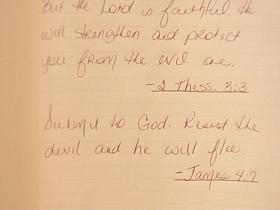 But the Lord is faithful. He
will strengthen and protect
you from the evil one.
-2 Thess. 3:3
Submit to God. Resist the
devil and he will flee.
-James 4:7